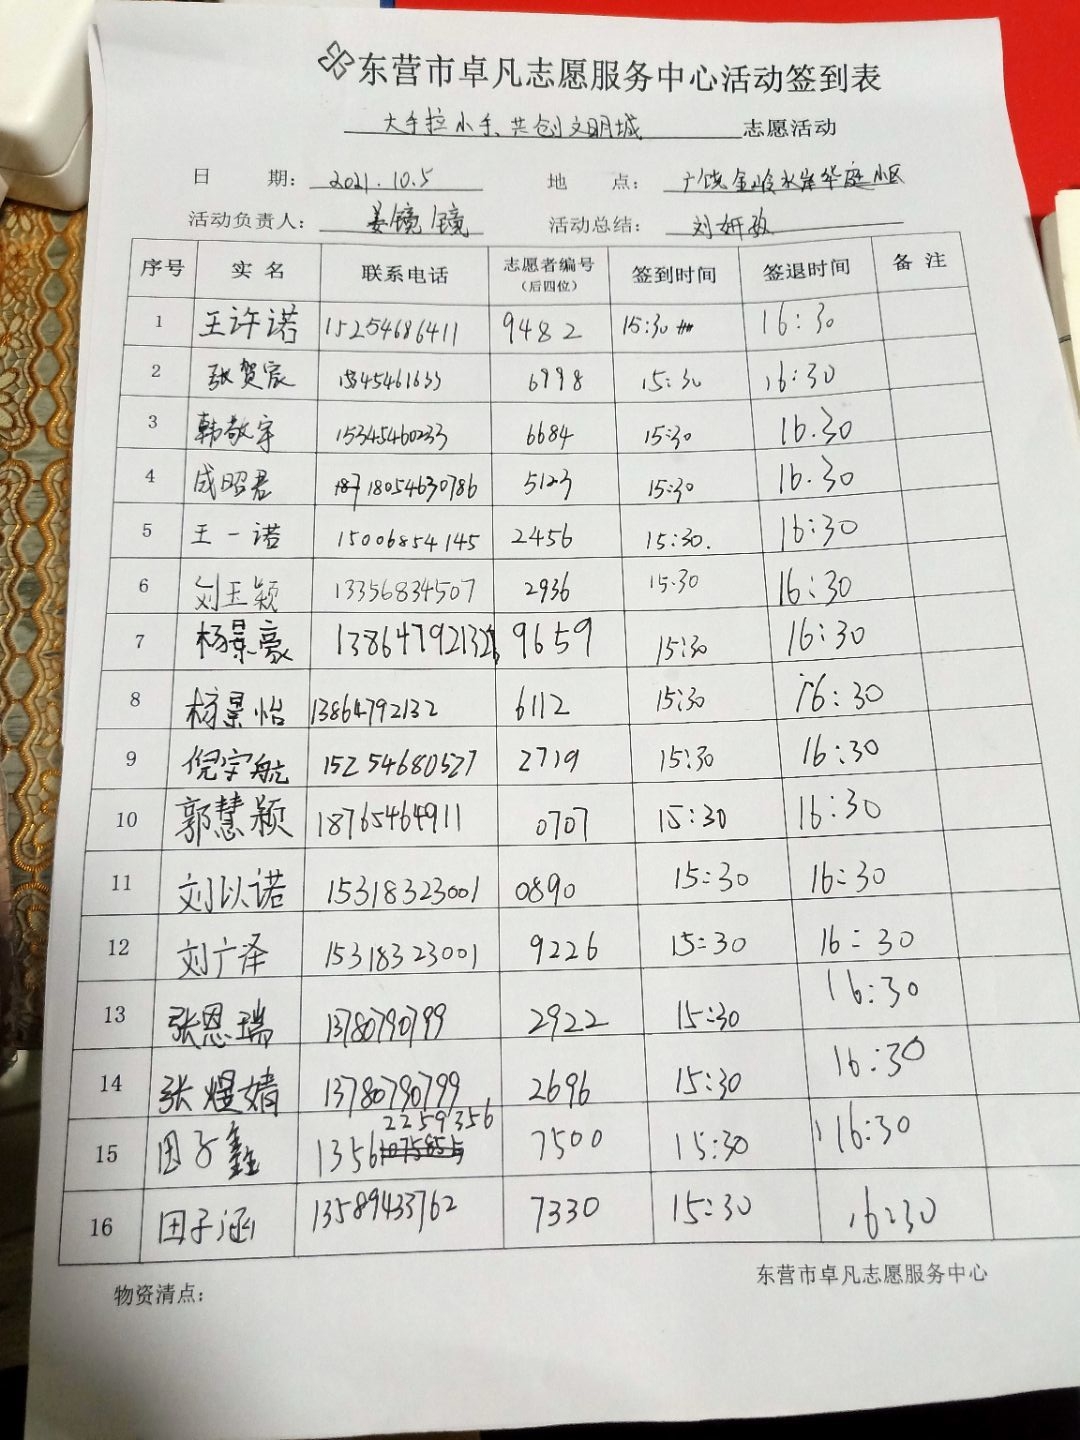 东营市卓凡志愿服务中心活动签到表
大手拉小手、共创文明城 志愿活动
日 期： 2021.10.5 地 点： 广饶金岭水岸华庭小区
活动负责人： 姜镜镜 活动总结： 刘妍孜
序号 实名 联系电话 志愿者编号（后四位） 签到时间 签退时间 备注
1 王许诺 15254686411 9482 15:30 16:30
2 张贺宸 6998 15:30 16:30
3 韩敬宇 15345460233 6684 15:30 16.30
4 成昭君 18054630786 5123 15:30 16.30
5 王一诺 15006854145 2456 15:30. 16:30
6 刘玉颖 13356834507 2936 15:30 16:30
7 杨景豪 9659 15:30 16:30
8 杨景怡 13864792132 6112 15:30 16:30
9 倪宇航 15254680527 2719 15:30 16:30
10 郭慧颖 18765464911 0707 15:30 16:30
11 刘以诺 15318323001 0890 15:30 16:30
12 刘广泽 15318323001 9226 15:30 16:30
13 张恩瑞 13780790799 2922 15:30 16:30
14 张煜婧 13780790799 2696 15:30 16:30
15 田子鑫 13562259356 7500 15:30 16:30
16 田子涵 13589433762 7330 15:30 16:30
物资清点： 东营市卓凡志愿服务中心